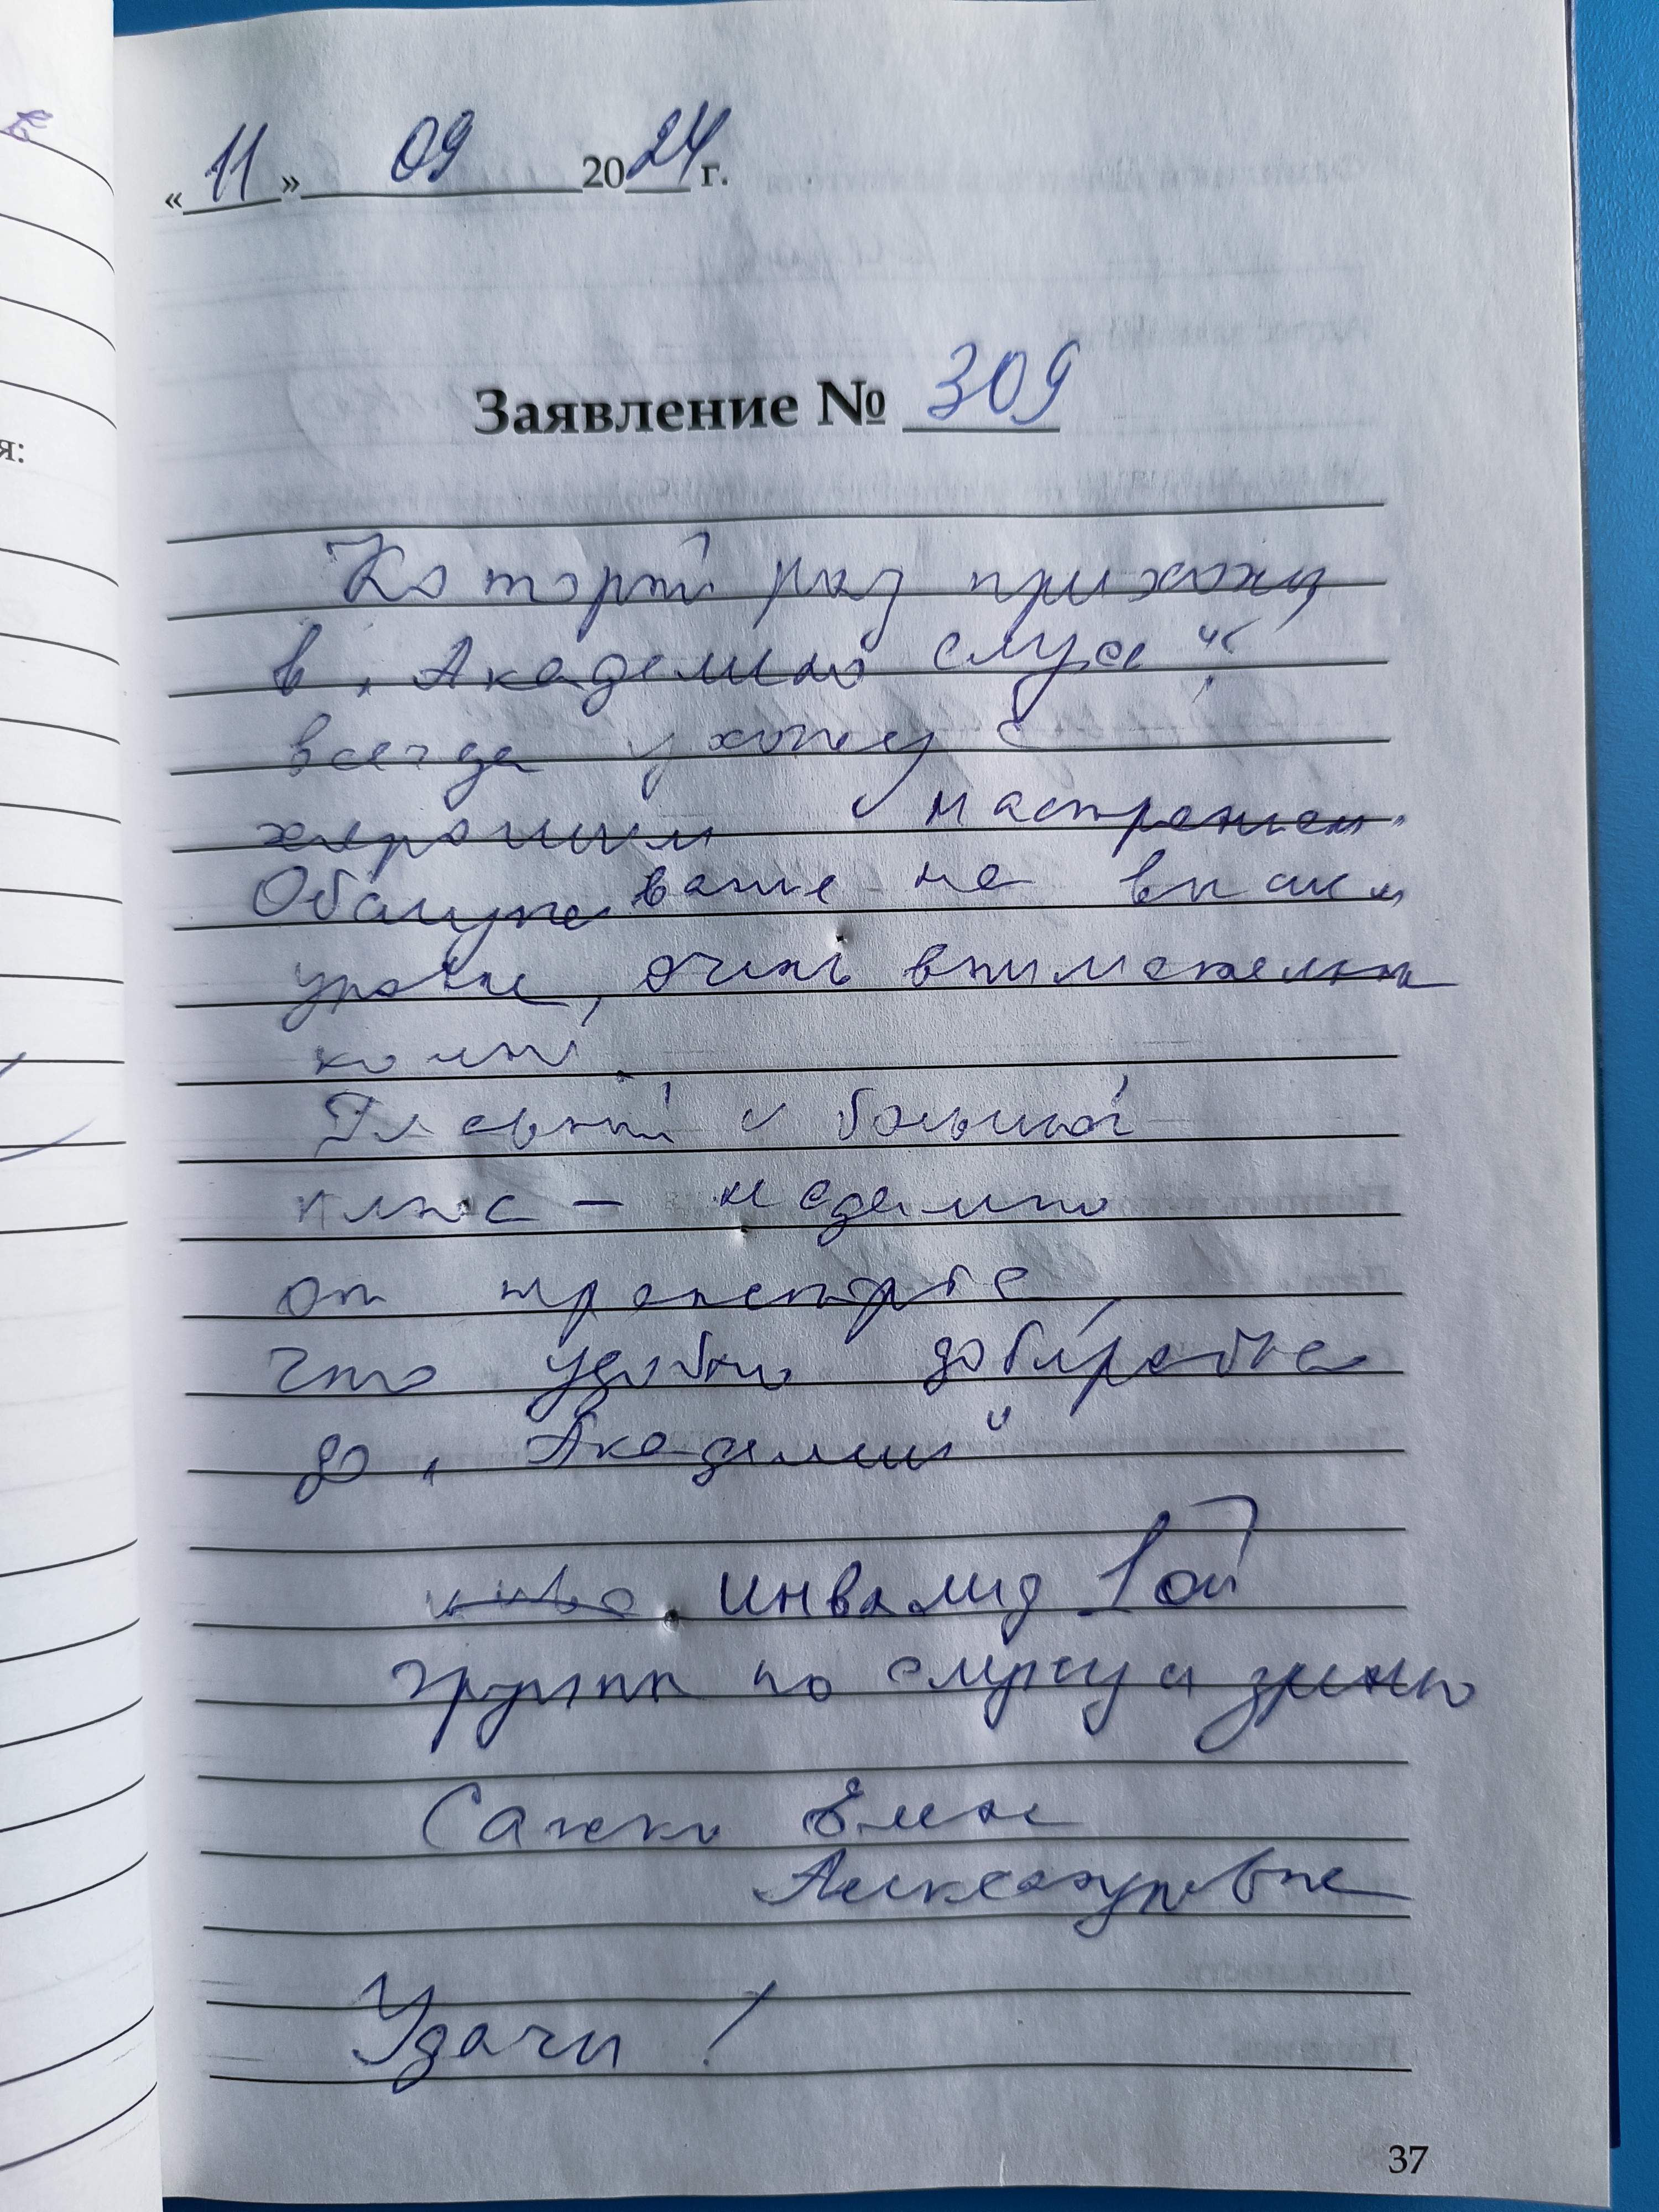 « 11 » 09 2024 г.
Заявление № 309
Который раз прихожу
в „Академию слуха“
всегда ухожу с
хорошим настроением.
Обслуживание на высшем
уровне, очень внимательно
Главный и большой
плюс – недалеко
от транспорта,
что удобно добираться
до „Академии“
инвалид 1ой
группы по слуху и зрению
Елена
Александровна
Удачи!
я:
37